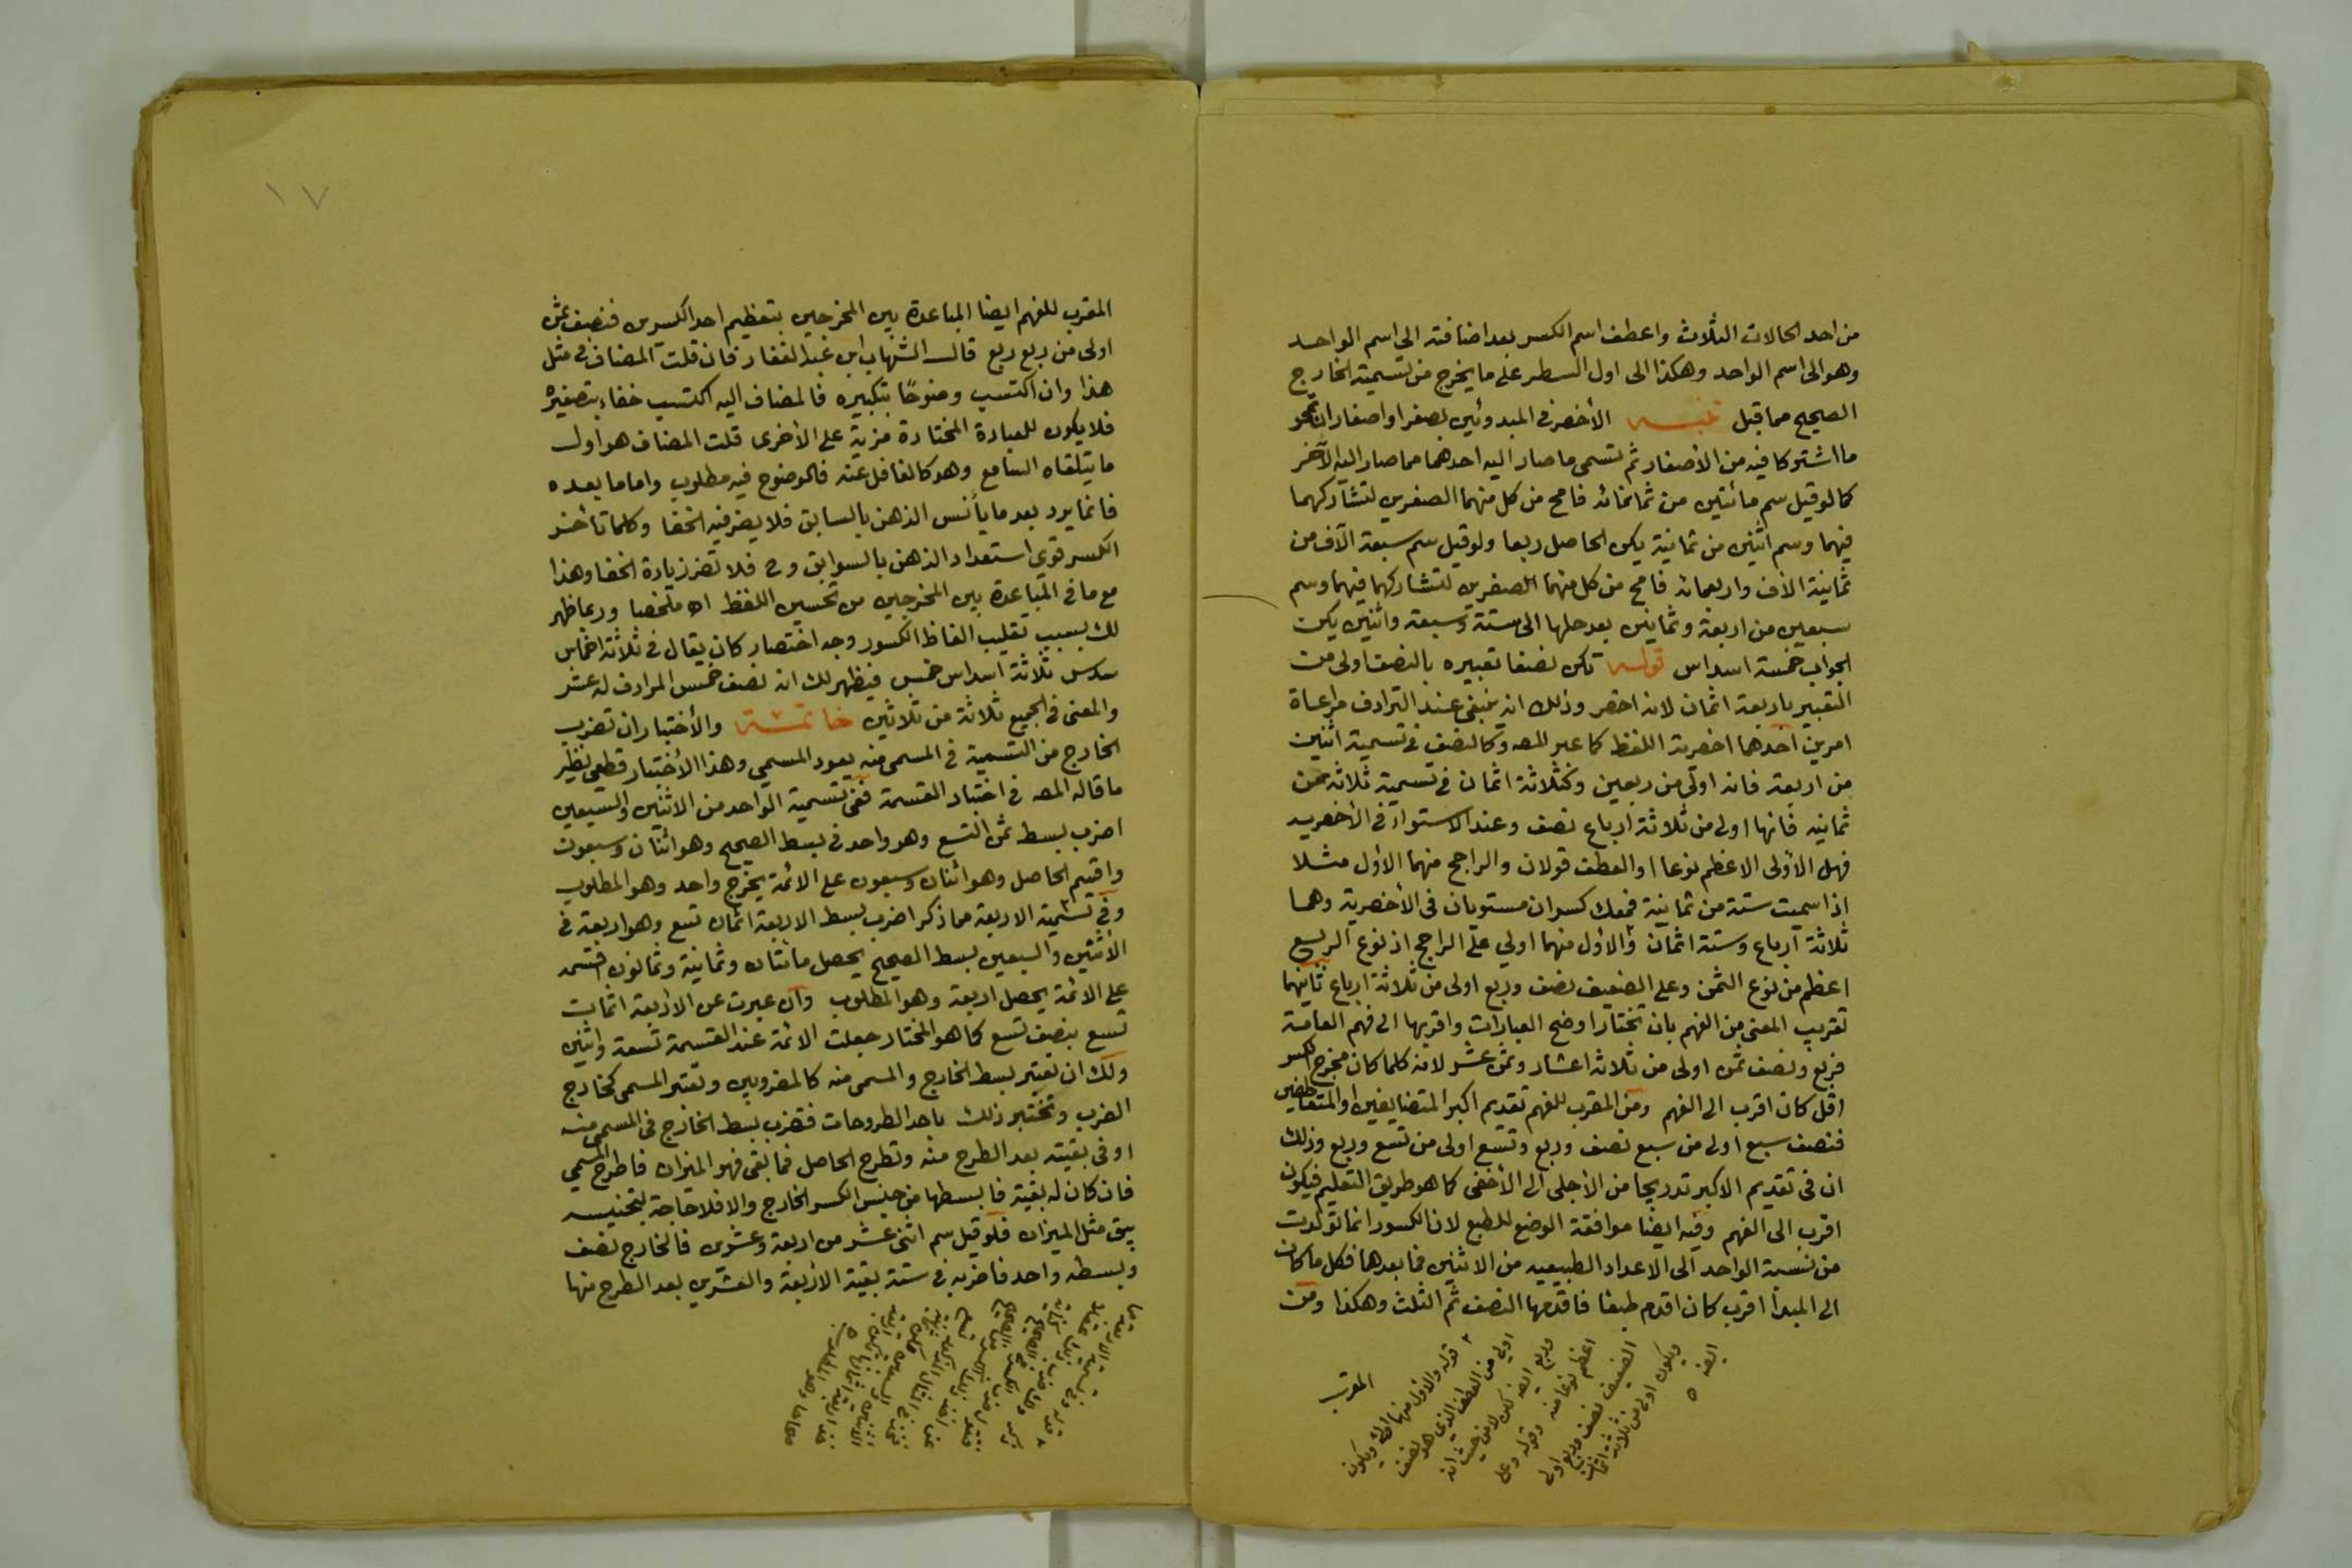 من احد الحالات الثلاث واعطف اسم الكسر بعد اضافته الى اسم الواحد
وهو الى اسم الواحد وهكذا الى اول السطر على ما يخرج من تسمية الخارج
الصحيح مما قبل تنبيه الأخصر فى المبدوئين بصفر او اصفار ان تمحو
ما اشتركا فيه من الأصفار ثم تسمى ما صار اليه احدهما مما صار اليه الآخر
كما لو قيل سم مائتين من ثمانمائة فامح من كل منهما الصفرين لتشاركهما
فيهما وسم اثنين من ثمانية يكن الحاصل ربعا ولو قيل سم سبعة آلاف من
ثمانية الاف واربعمائة فامح من كل منهما الصفرين لتشاركهما فيهما وسم
سبعين من اربعة وثمانين بعد حلها الى ستة وسبعة واثنين يكن
الجواب خمسة اسداس قوله تكن نصفا تعبيره بالنصف اولى من
التعبير باربعة اثمان لانه اخصر وذلك انه ينبغى عند الترادف مراعاة
امرين احدهما اخصرية اللفظ كما عبر المصه وكالنصف فى تسمية اثنين
من اربعة فانه اولى من ربعين وكثلاثة اثمان فى تسمية ثلاثة من
ثمانيه فانها اولى من ثلاثة ارباع نصف وعند الاستواء فى الأخصريه
فهل الأولى الاعظم نوعا او العطف قولان والراجح منهما الأول مثلا
اذا سميت ستة من ثمانية فمعك كسران مستويان فى الأخصرية وهما
ثلاثة ارباع وستة اثمان والأول منهما اولي على الراجح اذ نوع الربع
اعظم من نوع الثمن وعلى الضعيف نصف وربع اولى من ثلاثة ارباع ثانيهما
تقريب المعنى من الفهم بان تختار اوضح العبارات واقربها الى فهم العامة
فربع ونصف ثمن اولى من ثلاثة اعشار وثمن عشر لانه كلما كان مخرج الكسر
اقل كان اقرب الى الفهم ومن المقرب للفهم تقديم اكبر المتضايفين او المتعاطفين
فنصف سبع اولى من سبع نصف وربع وتسع اولى من تسع وربع وذلك
ان فى تقديم الاكبر تدريجا من الأجلى الى الأخفى كما هو طريق التعليم فيكون
اقرب الى الفهم وفيه ايضا موافقة الوضع للطبع لان الكسور انما تولدت
من نسبة الواحد الى الاعداد الطبيعيه من الاثنين فما بعدها فكل ما كان
الى المبدأ اقرب كان اقدم طبعا فاقدمها النصف ثم الثلث وهكذا ومن
المقرب
قوله والاول منهما الخ ويكون
اولى من العطف الذى هو نصف
وربع ايضه لكن لا من حيث انه
اعظم نوعا منه وقوله وعلى
الضعيف نصف وربع اولى
ويكون اولى من ثلاثة اثمان
ايضه ٥
١٧
المقرب للفهم ايضا المباعدة بين المخرجين بتعظيم احد الكسرين فنصف ثمن
اولى من ربع ربع قال الشهاب ابن عبد الغفار فان قلت المضاف فى مثل
هذا وان اكتسب وضوحًا بتكبيره فالمضاف اليه اكتسب خفاء بتصغيره
فلا يكون للعبارة المختارة مزية على الأخرى قلت المضاف هو اول
ما يتلقاه السامع وهو كالغافل عنه فالوضوح فيه مطلوب واما ما بعده
فانما يرد بعد ما يأنس الذهن بالسابق فلا يضر فيه الخفا وكلما تأخر
الكسر قوى استعداد الذهن بالسوابق وح فلا تضر زيادة الخفا وهذا
مع ما فى المباعدة بين المخرجين من تحسين اللفظ اه ملخصا وربما ظهر
لك بسبب تقليب الفاظ الكسور وجه اختصار كان يقال فى ثلاثة اخماس
سدس ثلاثة اسداس خمس فيظهر لك انه نصف خمس المرادف له عشر
والمعنى فى الجميع ثلاثة من ثلاثين خاتمة والأختبار ان تضرب
الخارج من التسمية فى المسمى منه يعود المسمي وهذا الأختبار قطعى نظير
ما قاله المصه فى اختبار القسمة ففى تسمية الواحد من الاثنين والسبعين
اضرب بسط ثمن التسع وهو واحد فى بسط الصحيح وهو اثنان وسبعون
واقسم الحاصل وهو اثنان وسبعون على الائمة يخرج واحد وهو المطلوب
وفى تسمية الاربعة مما ذكر اضرب بسط الاربعة اثمان تسع وهو اربعة فى
الاثنين والسبعين بسط الصحيح يحصل مائتان وثمانية وثمانون اقسمه
على الائمة يحصل اربعة وهو المطلوب وان عبرت عن الاربعة اثمان
تسع بنصف تسع كما هو المختار جعلت الائمة عند القسمة تسعة واثنين
ولك ان تعتبر بسط الخارج والمسمى منه كالمضروبين وتعتبر المسمى كخارج
الضرب وتختبر ذلك باحد الطروحات فتضرب بسط الخارج فى المسمى منه
او فى بقيته بعد الطرح منه وتطرح الحاصل فما بقى فهو الميزان فاطرح المسمي
فان كان له بقية فابسطها من جنس الكسر الخارج والا فلا حاجة لتجنيسه
يبق مثل الميزان فلو قيل سم اثنى عشر من اربعة وعشرين فالخارج نصف
وبسطه واحد فاضربه فى ستة بقية الاربعة والعشرين بعد الطرح منها